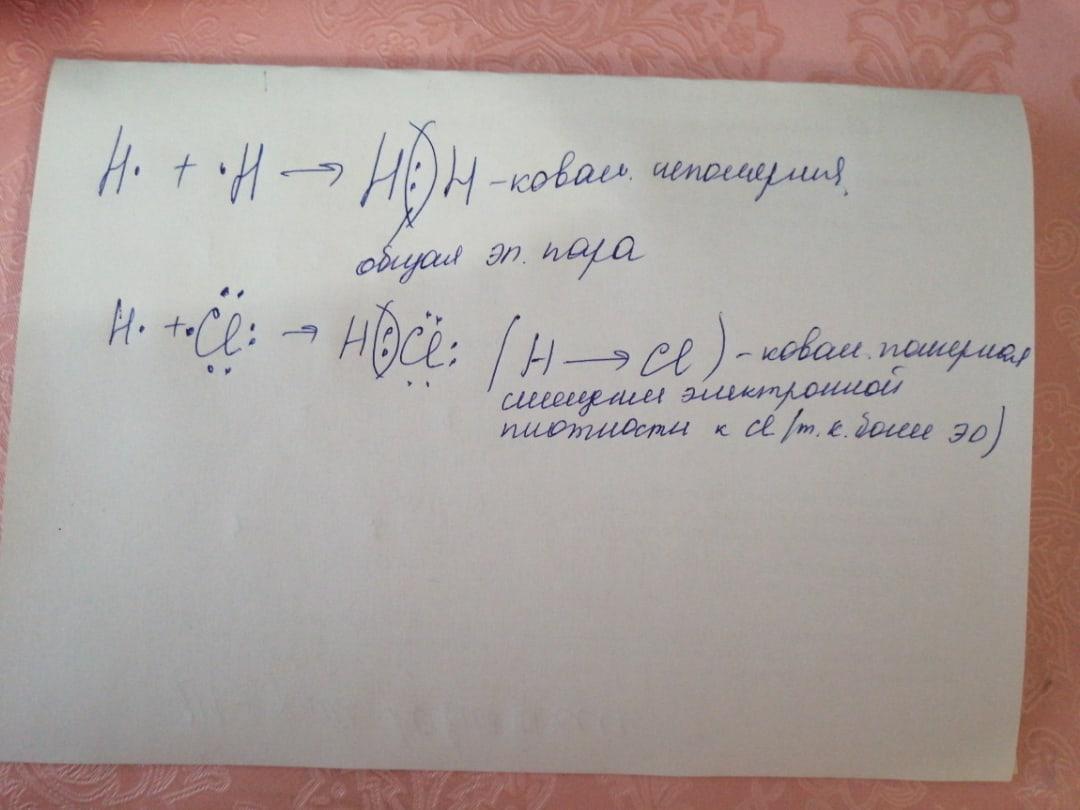 H· + ·H → H(:)H – ковал. неполярная
общая эл. пара
H· + ·Cl: → H(:)Cl: (H → Cl) – ковал. полярная
смещение электронной
плотности к Cl (т.к. более ЭО)